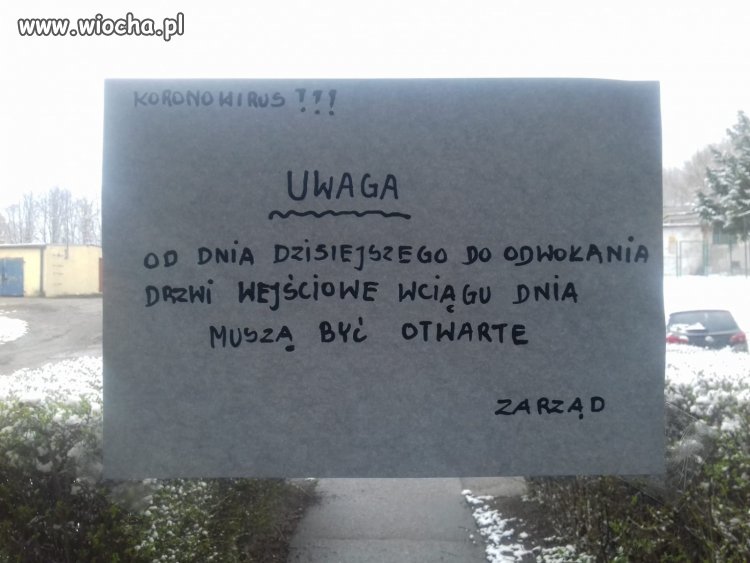 www.wiocha.pl
KORONOWIRUS !!!
UWAGA
OD DNIA DZISIEJSZEGO DO ODWOKANIA
DRZWI WEJŚCIOWE WCIĄGU DNIA
MUSZĄ BYĆ OTWARTE
ZARZĄD